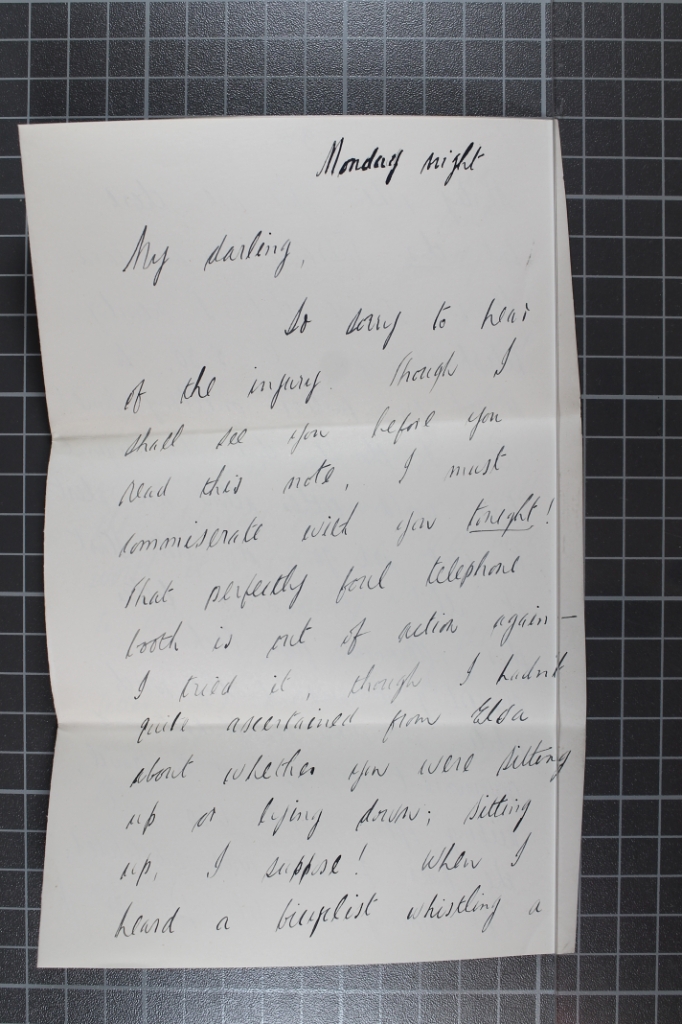 Monday night
My darling,
So sorry to hear
of the injury. Though I
shall see you before you
read this note, I must
commiserate with you tonight!
That perfectly foul telephone
booth is out of action again —
I tried it, though I hadn't
quite ascertained from Elsa
about whether you were sitting
up or lying down; sitting
up, I suppose! When I
heard a bicyclist whistling a